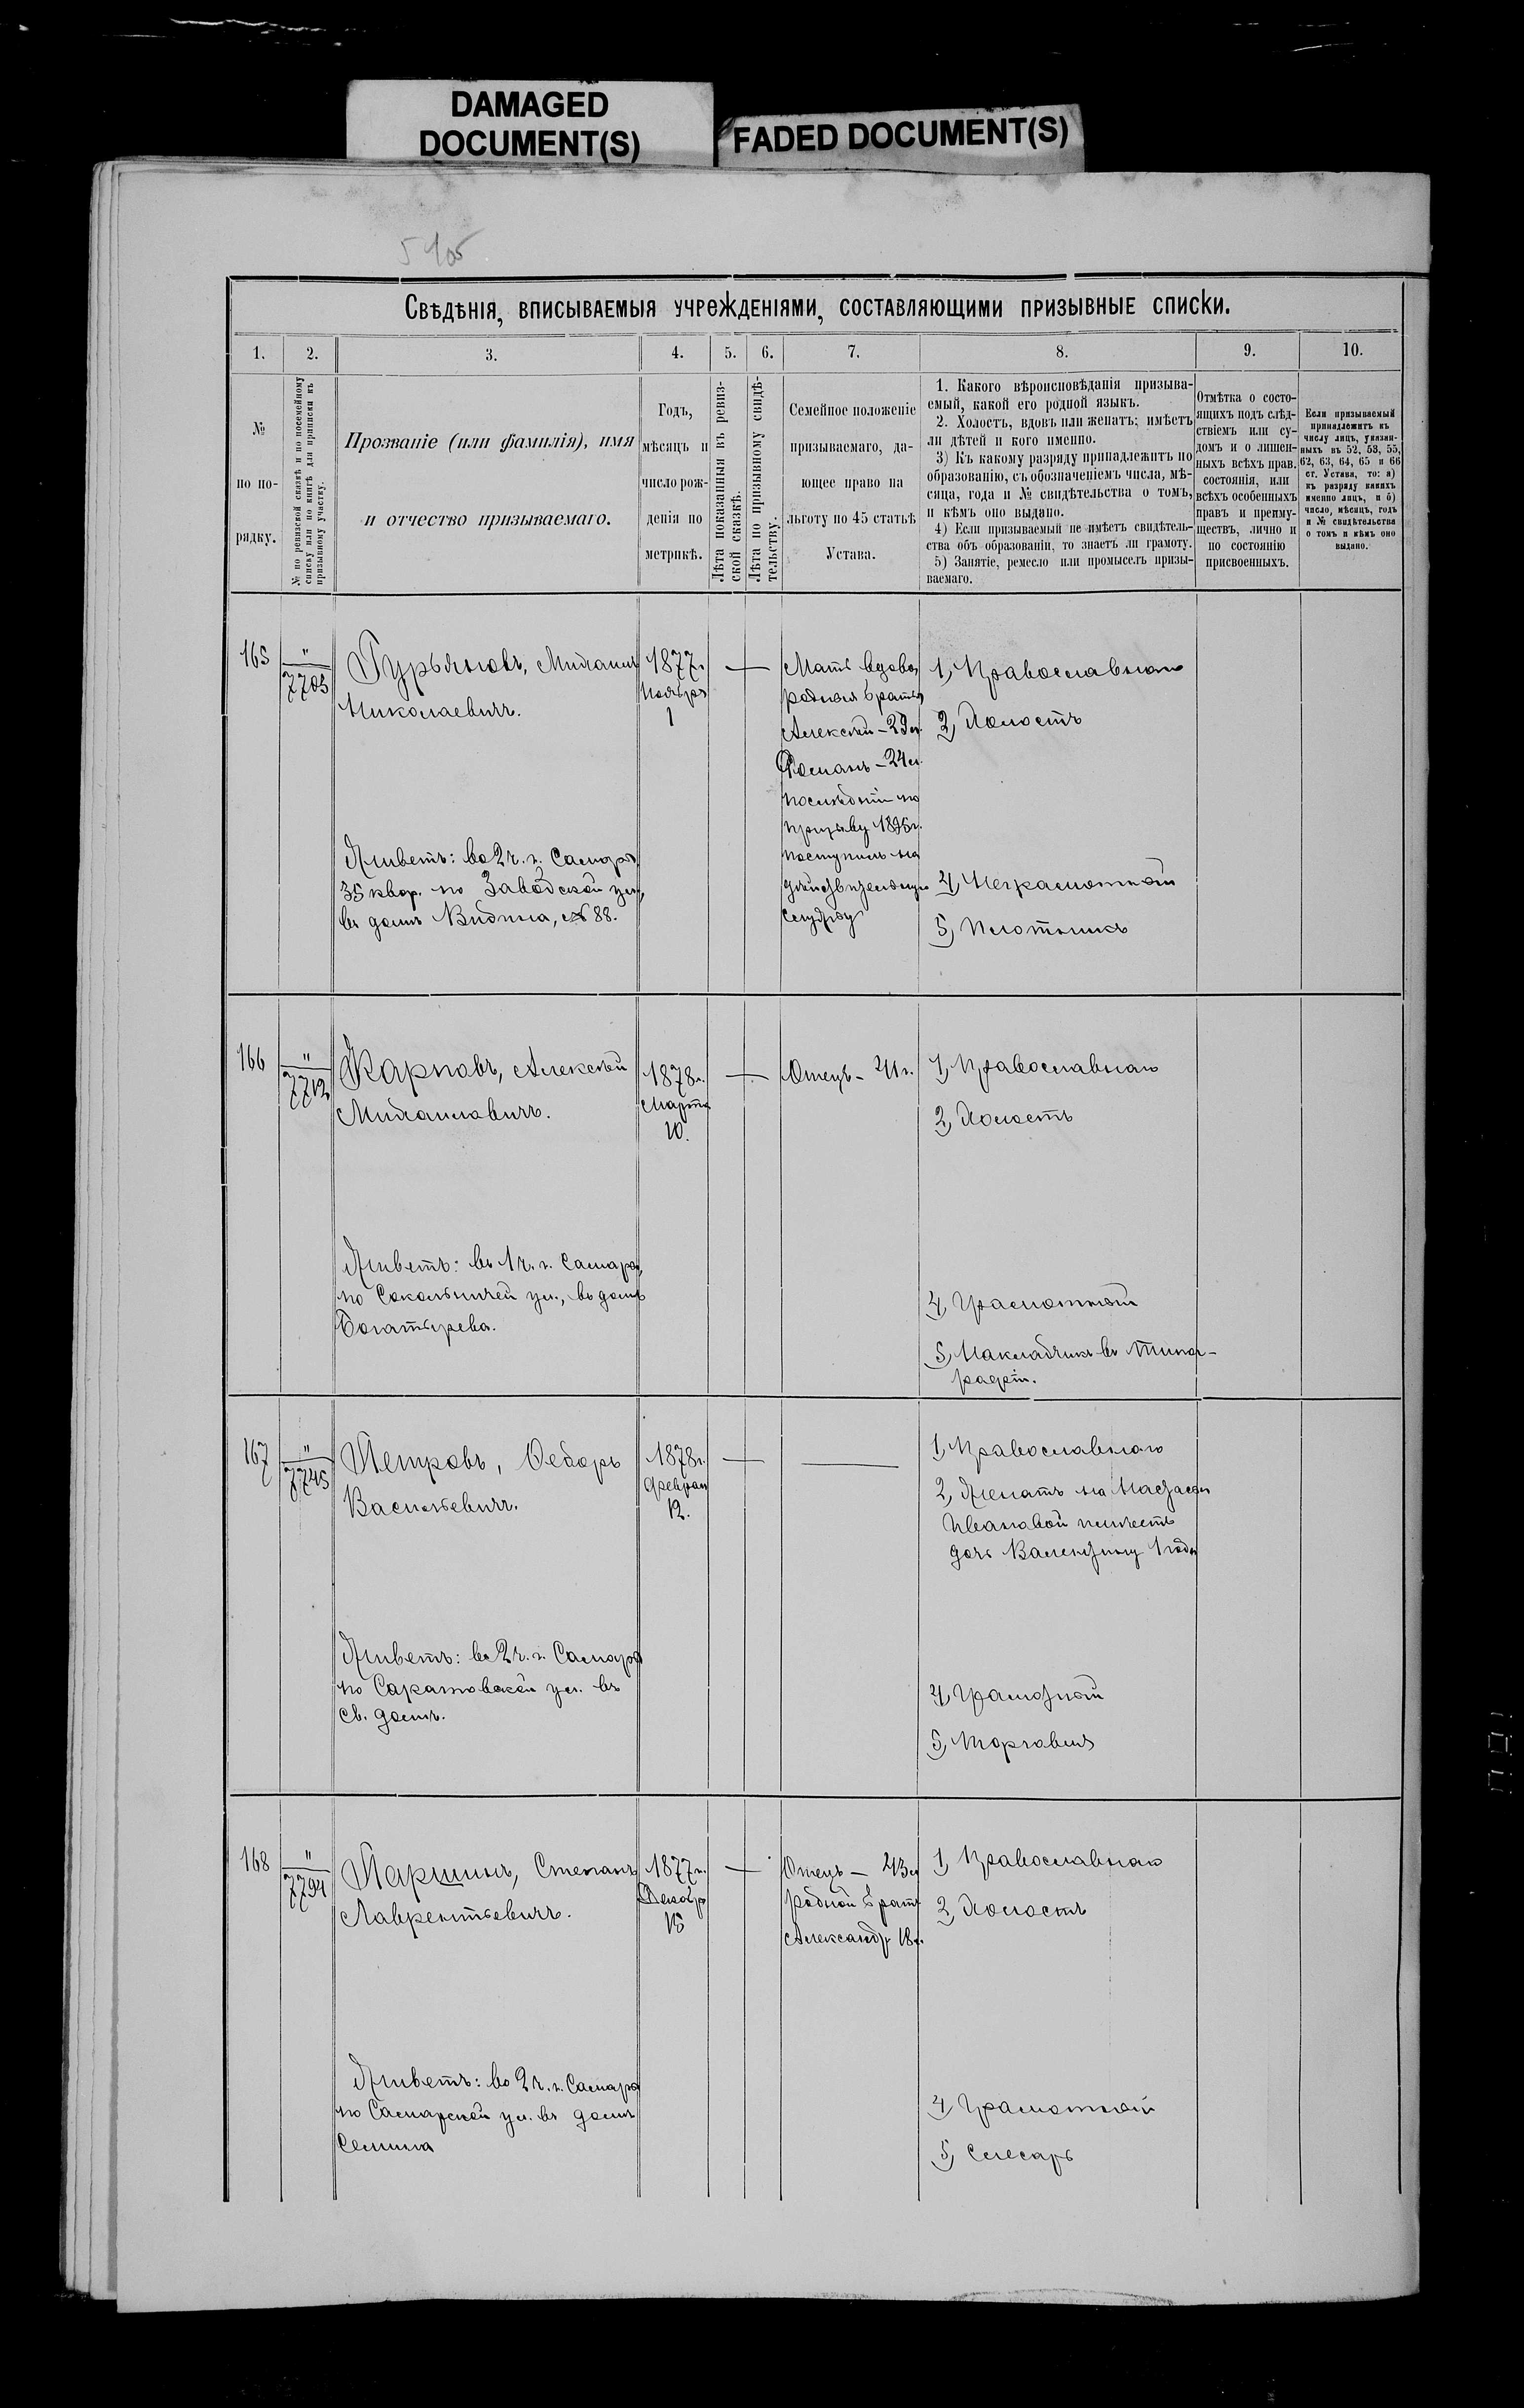 DAMAGED
DOCUMENT(S)
FADED DOCUMENT(S)
Свѣдѣнія, вписываемыя учрежденіями, составляющими призывные списки.
1. 2. 3. 4. 5. 6. 7. 8. 9. 10.
№
по по-
рядку.
№ по ревизской сказкѣ и по посемейному
списку или по книгѣ для приписки къ
призывному участку.
Прозваніе (или фамилія), имя
и отчество призываемаго.
Годъ,
мѣсяцъ и
число рож-
денія по
метрикѣ.
Лѣта показанныя въ ревиз-
ской сказкѣ.
Лѣта по призывному свидѣ-
тельству.
Семейное положеніе
призываемаго, да-
ющее право на
льготу по 45 статьѣ
Устава.
1. Какого вѣроисповѣданія призыва-
емый, какой его родной языкъ.
2. Холостъ, вдовъ или женатъ; имѣетъ
ли дѣтей и кого именно.
3) Къ какому разряду принадлежитъ по
образованію, съ обозначеніемъ числа, мѣ-
сяца, года и № свидѣтельства о томъ,
и кѣмъ оно выдано.
4) Если призываемый не имѣетъ свидѣтель-
ства объ образованіи, то знаетъ ли грамоту.
5) Занятіе, ремесло или промыселъ призы-
ваемаго.
Отмѣтка о состо-
ящихъ подъ слѣд-
ствіемъ или су-
домъ и о лишен-
ныхъ всѣхъ прав.
состоянія, или
всѣхъ особенныхъ
правъ и преиму-
ществъ, лично и
по состоянію
присвоенныхъ.
Если призываемый
принадлежитъ къ
числу лицъ, указан-
ныхъ въ 52, 53, 55,
62, 63, 64, 65 и 66
ст. Устава, то: а)
къ разряду какихъ
именно лицъ, и б)
число, мѣсяцъ, годъ
и № свидѣтельства
о томъ и кѣмъ оно
выдано.
165
"
7705
Гурьяновъ, Михаилъ
Николаевичъ.
Живетъ: во 2 ч. г. Самары
35 квар. по Заводской ул.,
въ домѣ Видина, № 88.
1877г.
Ноября
1
Мать вдова,
родныя братья
Алексѣй - 29 л.
Романъ - 24 л.
послѣдній по
призыву 1895г.
поступилъ на
дѣйствительную
службу
1, Православнаго
2, Холостъ
4, Неграмотный
5, Плотникъ
166
"
7712
Карповъ, Алексѣй
Михайловичъ.
Живетъ: въ 1 ч. г. Самары,
по Сокольничей ул., въ домѣ
Богатырева.
1878г.
Марта
10.
Отецъ - 41 г.
1, Православнаго
2, Холостъ
4, Грамотный
5, Накладчикъ въ типог-
рафіи.
167
"
7745
Петровъ, Ѳедоръ
Васильевичъ.
Живетъ: во 2 ч. г. Самары
по Саратовской ул. въ
св. домѣ.
1878г.
Феврал
12.
1, Православнаго
2, Женатъ на Настасьи
Ивановой имѣетъ
дочь Валентину 1 года
4, Грамотный
5, Торговля
168
"
7794
Паршинъ, Степанъ
Лаврентьевичъ.
Живетъ: во 2 ч. г. Самары
по Самарской ул. въ домѣ
Семина
1877г.
Декабр
15
Отецъ - 43 л
родной братъ
Александръ 18 л.
1, Православнаго
2, Холостъ
4, Грамотный
5, Слесарь